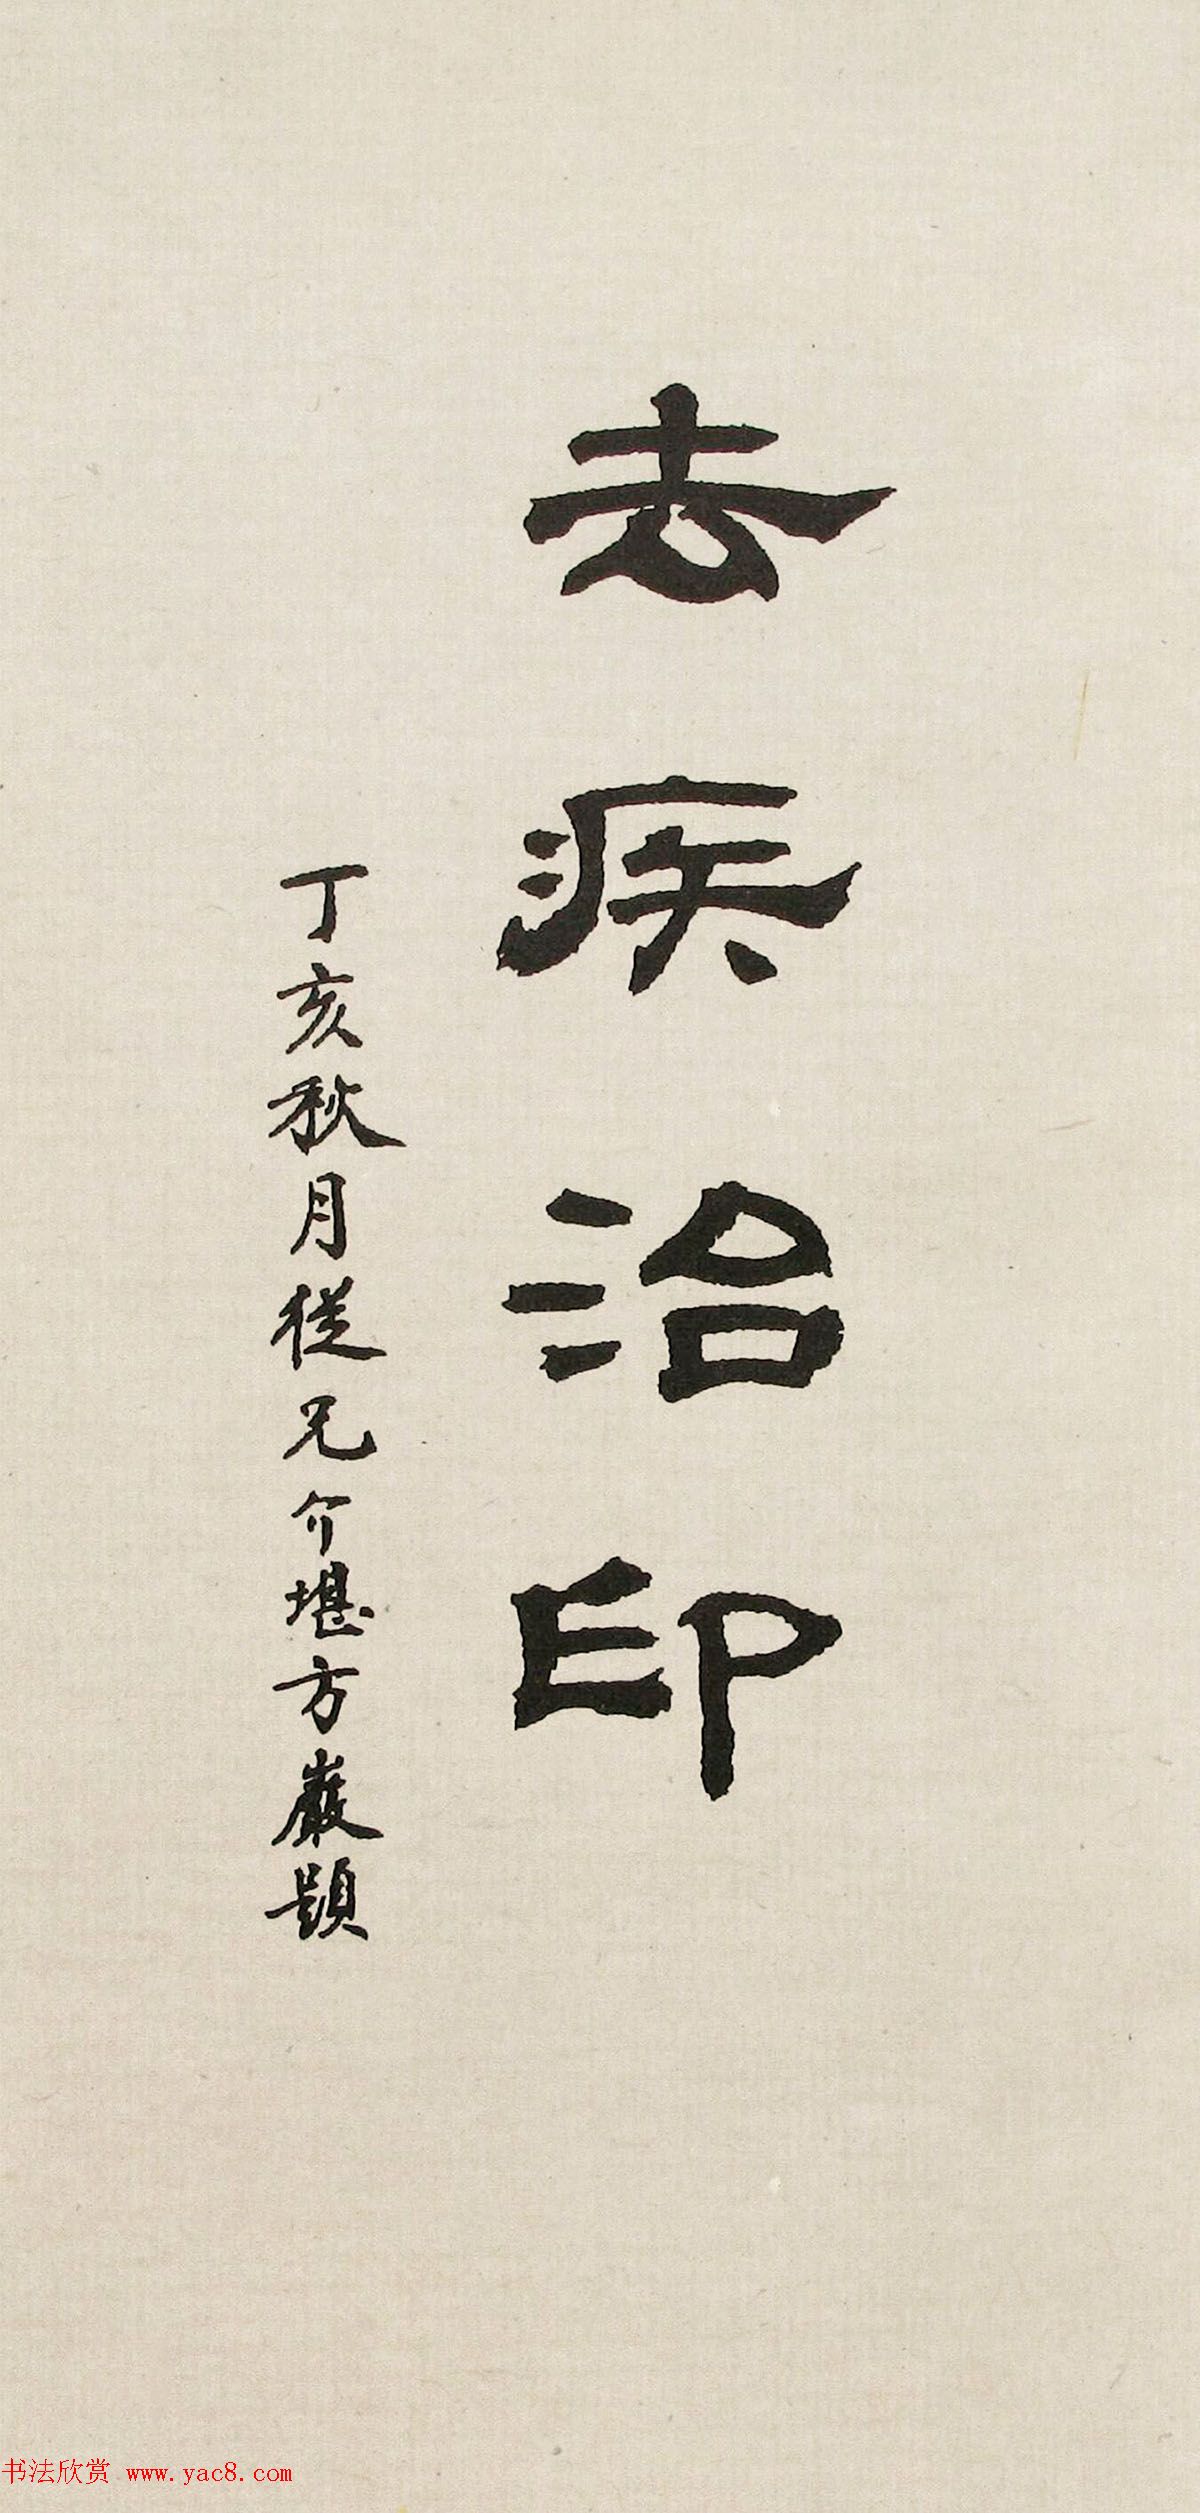 去疾治印
丁亥秋月從兄介堪方巖題
书法欣赏 www.yac8.com